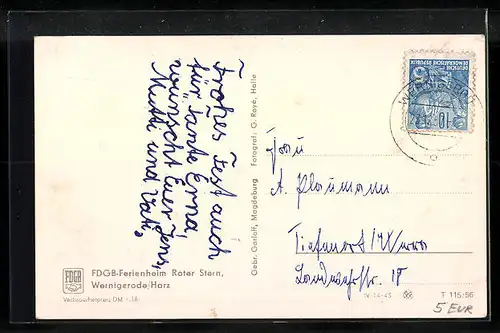 Frohes Fest auch
für Tante Erna,
wünscht Euer Jens,
Mutti und Vati.
FDGB-Ferienheim Roter Stern,
Wernigerode/Harz
Verbraucherpreis DM -.18
Gebr. Garloff, Magdeburg Fotograf: G. Rayé, Halle
DEUTSCHE
DEMOKRATISCHE REPUBLIK
10
Frau
A. Plaumann
Tiefenort
Landwehrstr. 18
IV-14-45
T 115:56
5 EUR